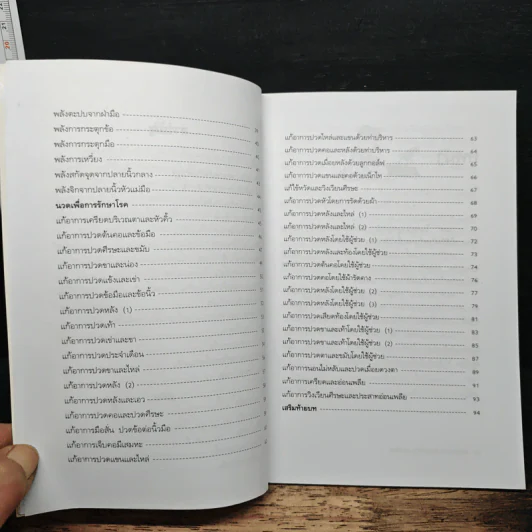 พลังตะปบจากฝ่ามือ
พลังการกระตุกข้อ
พลังการกระตุกมือ
พลังการเหวี่ยง
พลังสกัดจุดจากปลายนิ้วกลาง
พลังจิกจากปลายนิ้วหัวแม่มือ
นวดเพื่อการรักษาโรค
แก้อาการเครียดบริเวณตาและหัวคิ้ว
แก้อาการปวดต้นคอและข้อมือ
แก้อาการปวดศีรษะและขมับ
แก้อาการปวดขาและน่อง
แก้อาการปวดแข้งและเข่า
แก้อาการปวดข้อมือและข้อนิ้ว
แก้อาการปวดหลัง (1)
แก้อาการปวดเท้า
แก้อาการปวดเข่าและขา
แก้อาการปวดประจำเดือน
แก้อาการปวดขาและไหล่
แก้อาการปวดหลัง (2)
แก้อาการปวดหลังและเอว
แก้อาการปวดคอและปวดศีรษะ
แก้อาการมือสั่น ปวดข้อต่อนิ้วมือ
แก้อาการเจ็บคอมีเสมหะ
แก้อาการปวดแขนและไหล่
แก้อาการปวดไหล่และแขนด้วยท่าบริหาร 63
แก้อาการปวดคอและหลังด้วยท่าบริหาร 64
แก้อาการปวดเมื่อยหลังด้วยลูกกอล์ฟ 65
แก้อาการปวดแขนและคอด้วยเน็กไท 66
แก้ไข้หวัดและวิงเวียนศีรษะ 67
แก้อาการปวดหัวโดยการรัดด้วยผ้า 68
แก้อาการปวดหลังและไหล่ (1) 69
แก้อาการปวดหลังและไหล่ (2) 70
แก้อาการปวดหลังโดยใช้ผู้ช่วย (1) 72
แก้อาการปวดหลังและท้องโดยใช้ผู้ช่วย 73
แก้อาการปวดต้นคอโดยใช้ผู้ช่วย 74
แก้อาการปวดคอโดยใช้ผ้ารัดคาง 76
แก้อาการปวดหลังโดยใช้ผู้ช่วย (2) 77
แก้อาการปวดหลังโดยใช้ผู้ช่วย (3) 79
แก้อาการปวดเสียดท้องโดยใช้ผู้ช่วย 81
แก้อาการปวดขาและเท้าโดยใช้ผู้ช่วย (1) 83
แก้อาการปวดขาและเท้าโดยใช้ผู้ช่วย (2) 85
แก้อาการปวดตาและขมับโดยใช้ผู้ช่วย 87
แก้อาการนอนไม่หลับและปวดเมื่อยดวงตา 89
แก้อาการเครียดและอ่อนเพลีย 91
แก้อาการวิงเวียนศีรษะและประสาทอ่อนเพลีย 93
เสริมท้ายบท 94